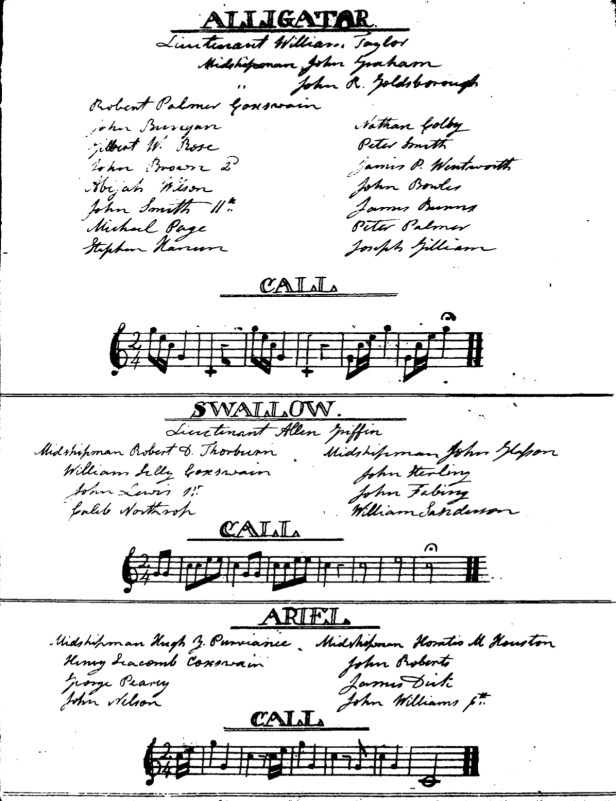 ALLIGATOR.
Lieutenant William Taylor
Midshipman John Graham
" John R. Goldsborough
Robert Palmer Coxswain
John Bunyan
Gilbert W. Rose
John Brown 2d
Abijah Wilson
John Smith 11th
Michael Page
Stephen
Nathan Colby
Peter Smith
James P. Wentworth
John Bowles
James Burns
Peter Palmer
Joseph Gilliam
CALL
2 4
SWALLOW.
Lieutenant Allen Griffin
Midshipman Robert D. Thorburn
William Coxswain
John Lewis 1st
Caleb Northrop
Midshipman John Glasson
John Sterling
John Fabing
William Sanderson
CALL
2 4
ARIEL
Midshipman Hugh Y. Purviance
Henry Seacomb Coxswain
George Pearcy
John Nelson
Midshipman Horatio M Houston
John Roberts
James Dick
John Williams 6th
CALL
2 4